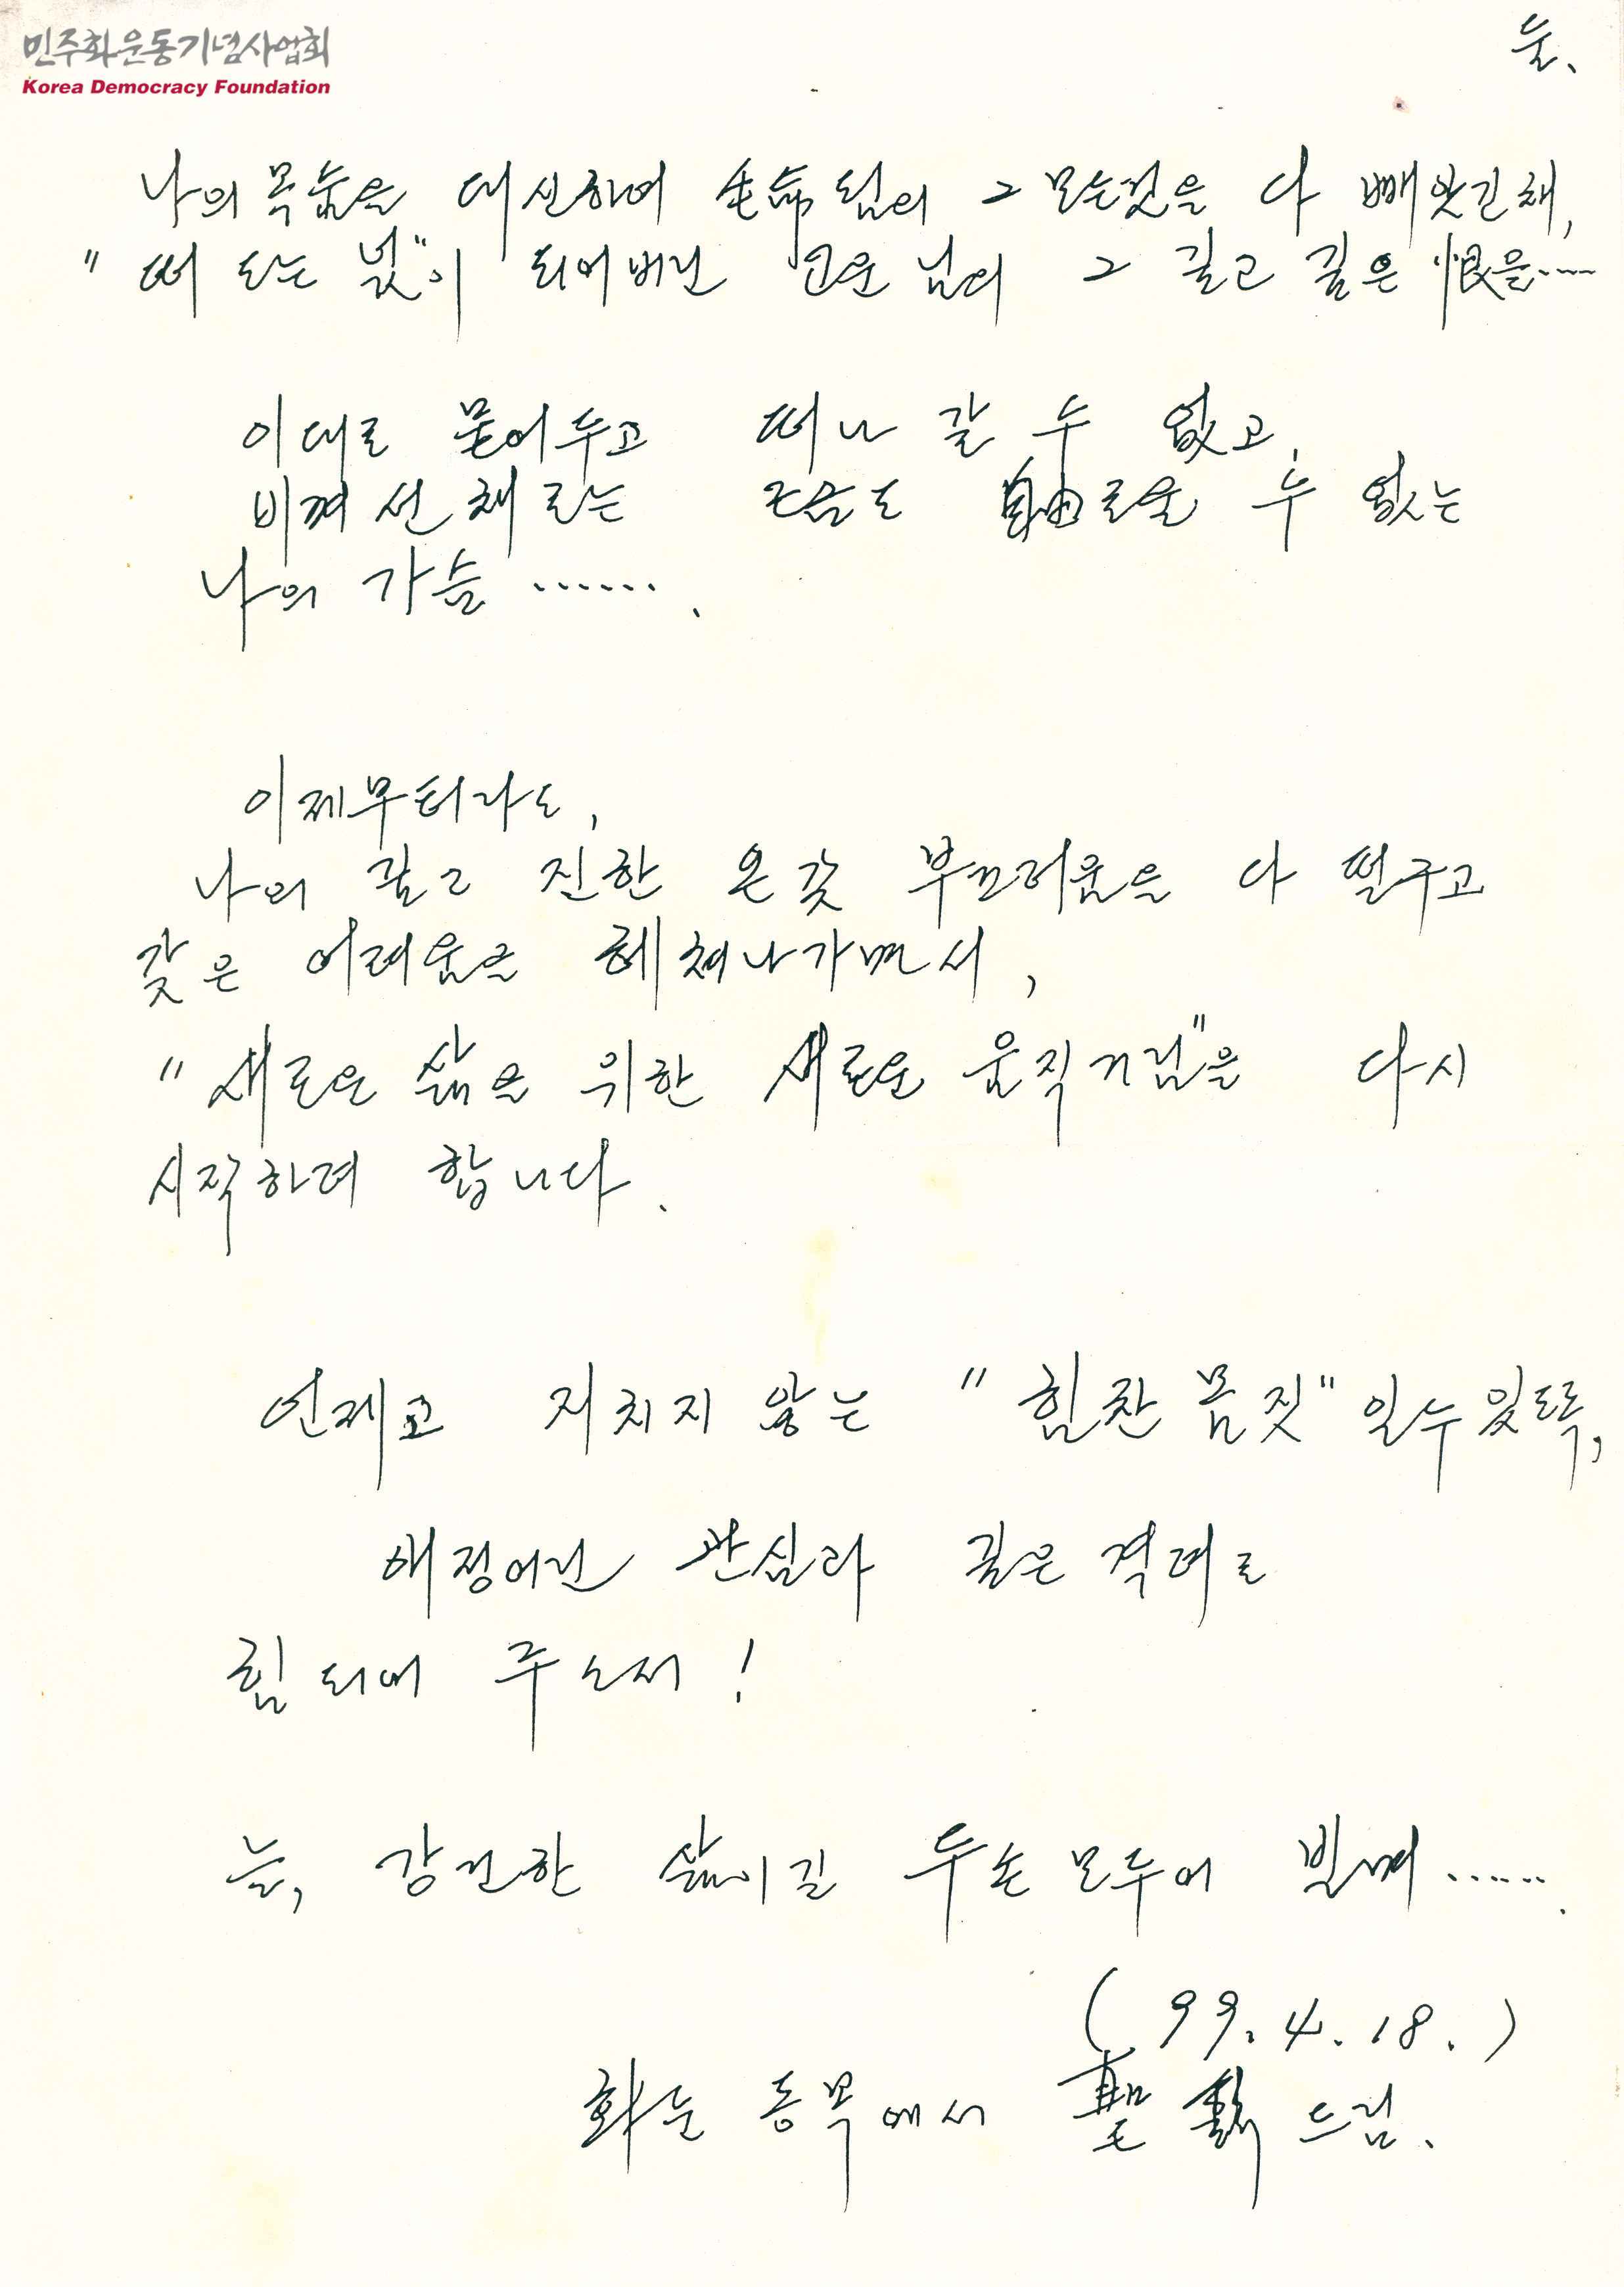 민주화운동기념사업회
Korea Democracy Foundation
둘.
나의 목숨을 대신하여 生命됨의 그 모든것을 다 빼앗긴채,
"떠도는 넋"이 되어버린 고운님의 그 길고 깊은 恨을·····
이대로 묻어두고 떠나 갈 수 없고,
비껴선채로는 조금도 自由로울 수 없는
나의 가슴 ······.
이제부터라도,
나의 길고 진한 온갖 부끄러움을 다 떨구고
갖은 어려움을 헤쳐나가면서,
"새로운 삶을 위한 새로운 움직거림"을 다시
시작하려 합니다.
언제고 지치지 않는 "힘찬 몸짓"일수있도록,
애정어린 관심과 깊은 격려로
힘되어 주소서!
늘, 강건한 삶이길 두손모두어 빌며······.
(99.4.18.)
화순 동복에서 聖 드림.